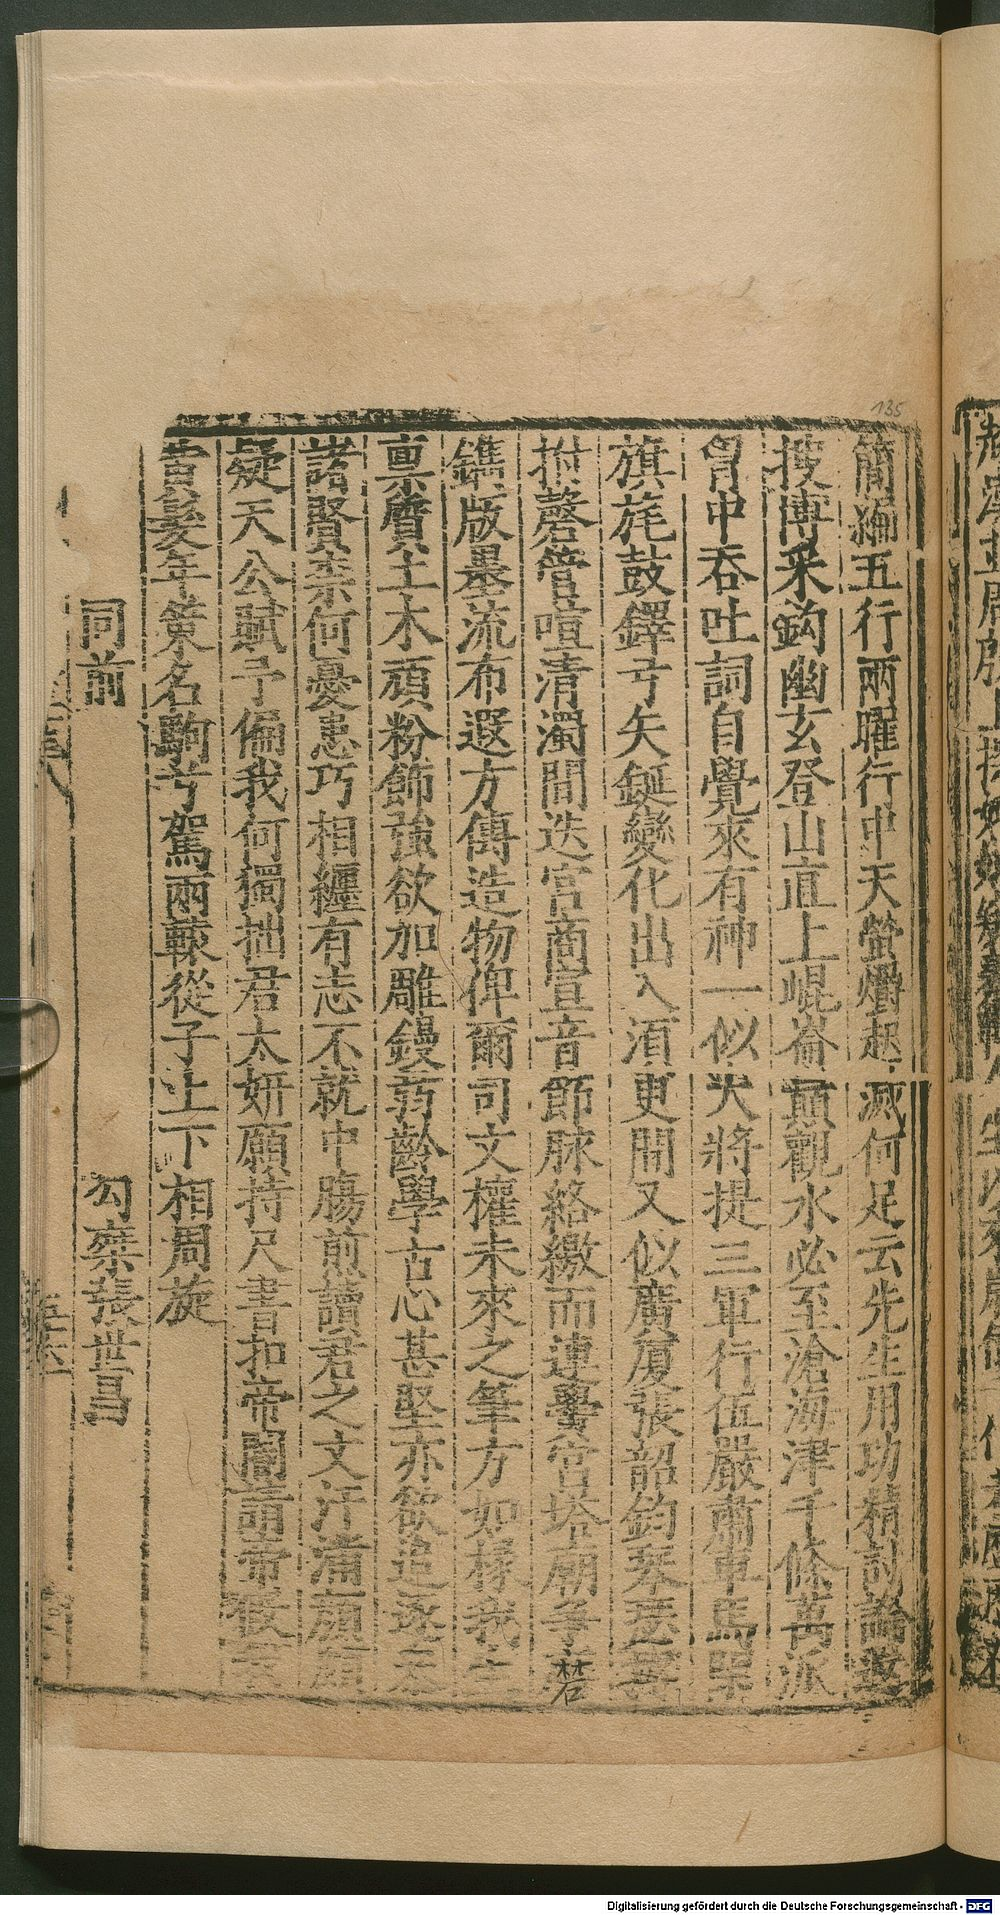 135
簡編五行兩曜行中天螢爝起滅何足云先生用功精討論
搜博采鈎幽玄登山直上崐崙顛觀水必至滄海津千條萬派
胷中吞吐詞自覺來有神一似大將提三軍行伍嚴肅車馬
旗旄鼓鐸弓矢鋋變化出入湏更開又似廣廈張韶鈞琴瑟
拊磬管喧清濁間迭宮商宣音節脉絡繳而連黌宮塔廟爭礱
鐫版墨流布遐方傳造物俾爾司文權未來之筆方如椽我生
禀質土木頑粉飾強欲加雕鏝弱齡學古心甚堅亦欲追逐
諸賢柰何憂患巧相纏有志不就中腸煎讀君之文汗滿顔
疑天公賦予偏我何獨拙君太妍願持尺書扣帝閽請帝假
黃髮年策名駒兮駕兩轅從子上下相周旋
同前 勾桒張世昌
Digitalisierung gefördert durch die Deutsche Forschungsgemeinschaft - DFG